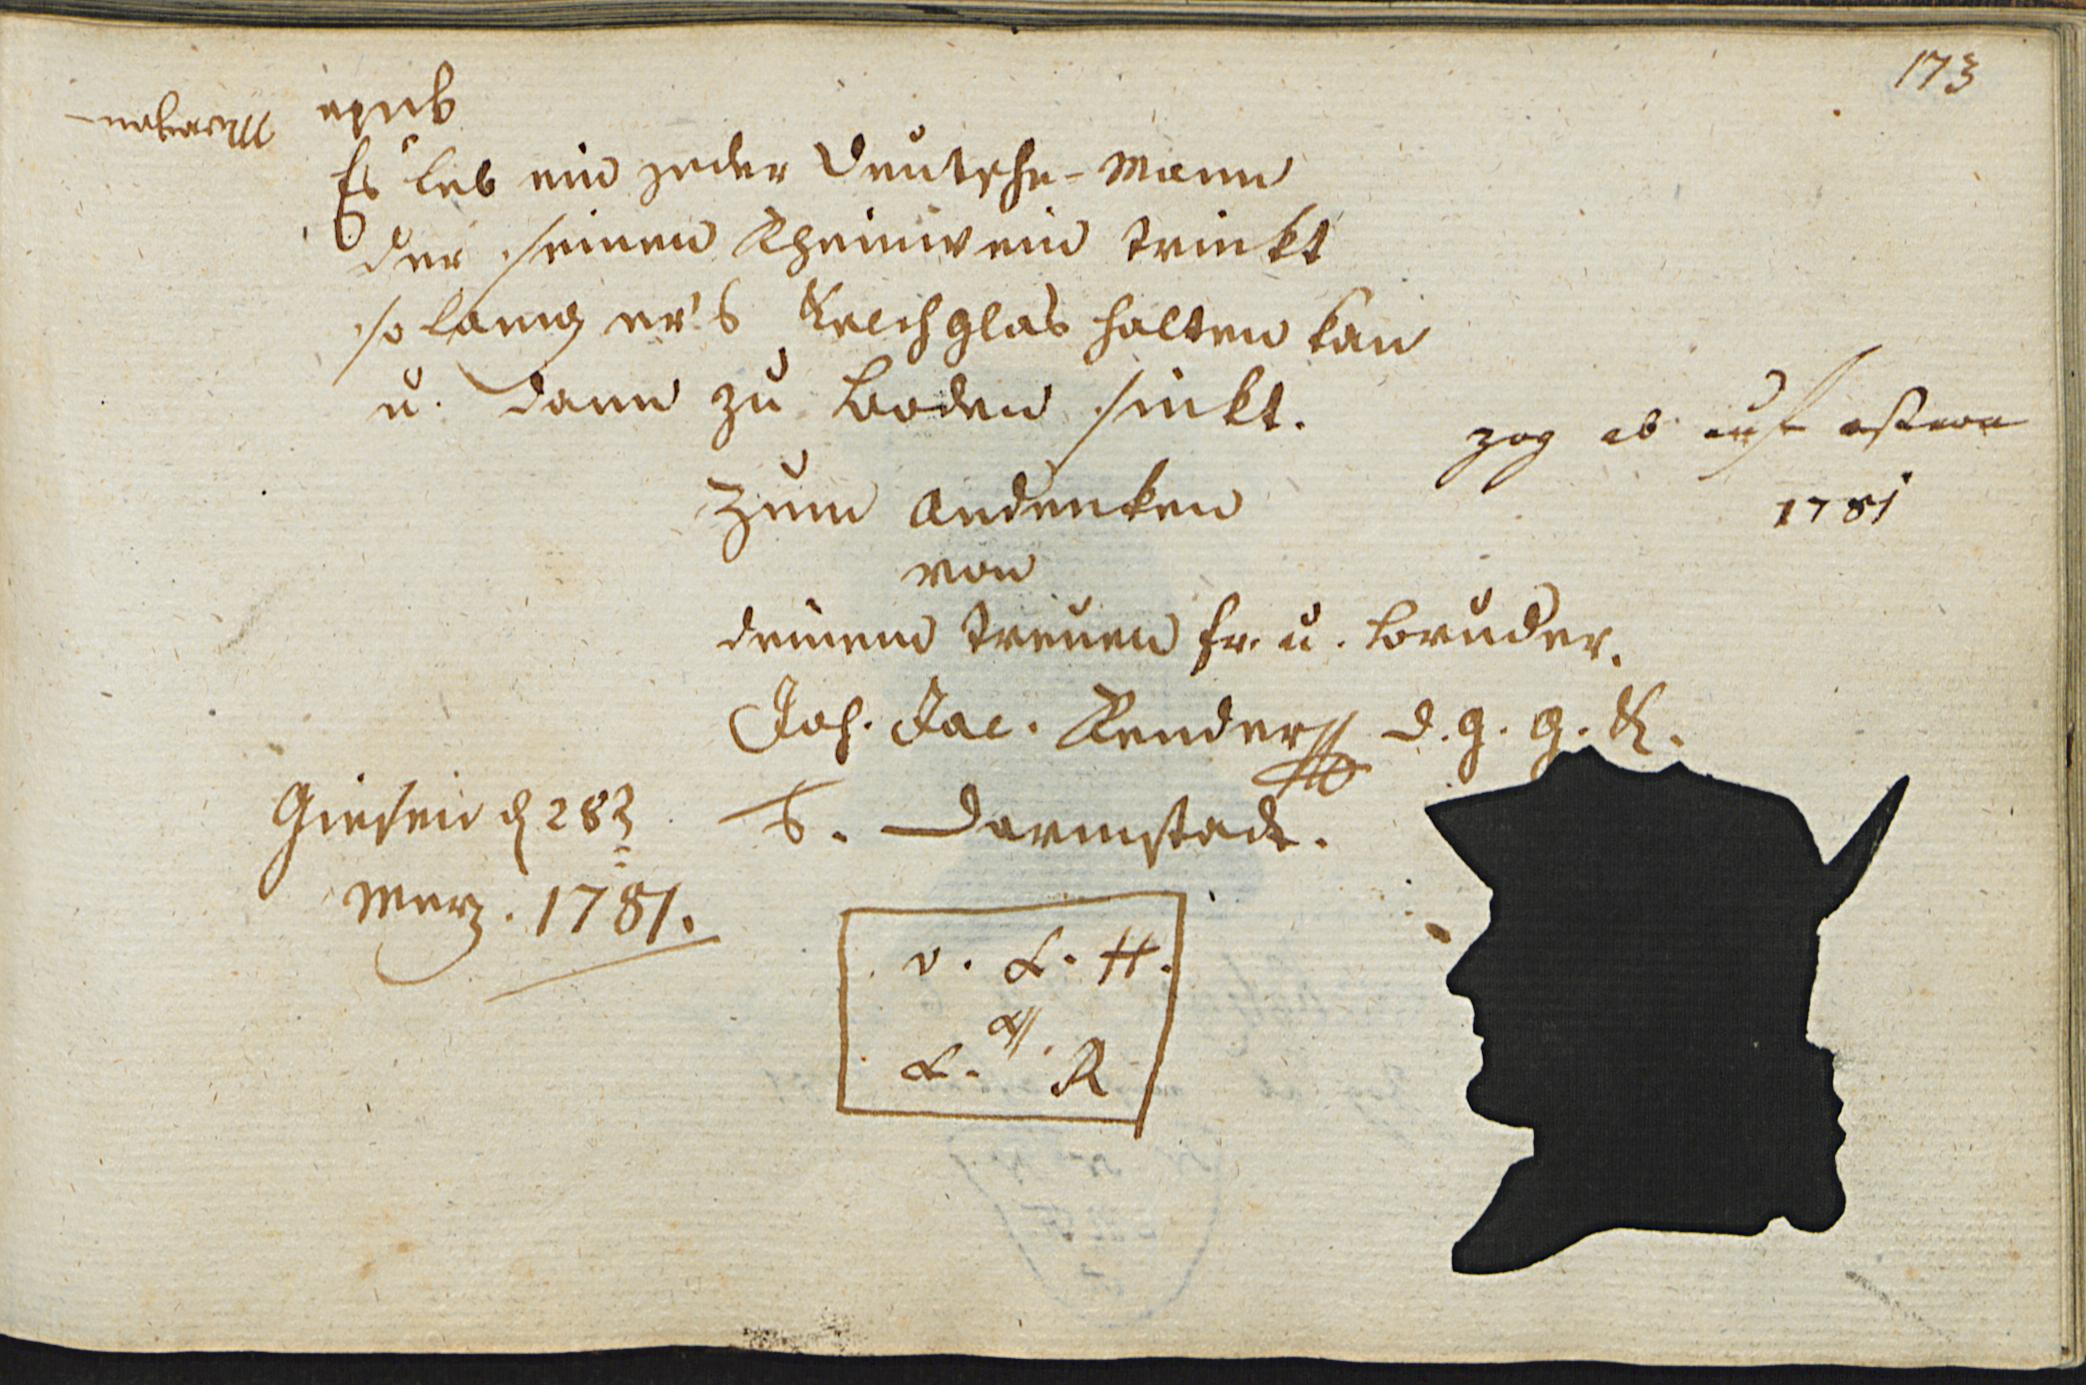 173
Es leb ein jeder Deutsche-Mann
der seinen Rheinwein trinkt
so lang er's Kelchglas halten kan
u. dann zu Boden sinkt.
zog ab auf ostern
1781
Zum Andenken
von
deinem treuen Fr. u. Bruder.
Joh. Jac. Render d. G. G. B.
Giesen d 28
Merz. 1781.
S. Darmstadt.
v. L. H.
L. R